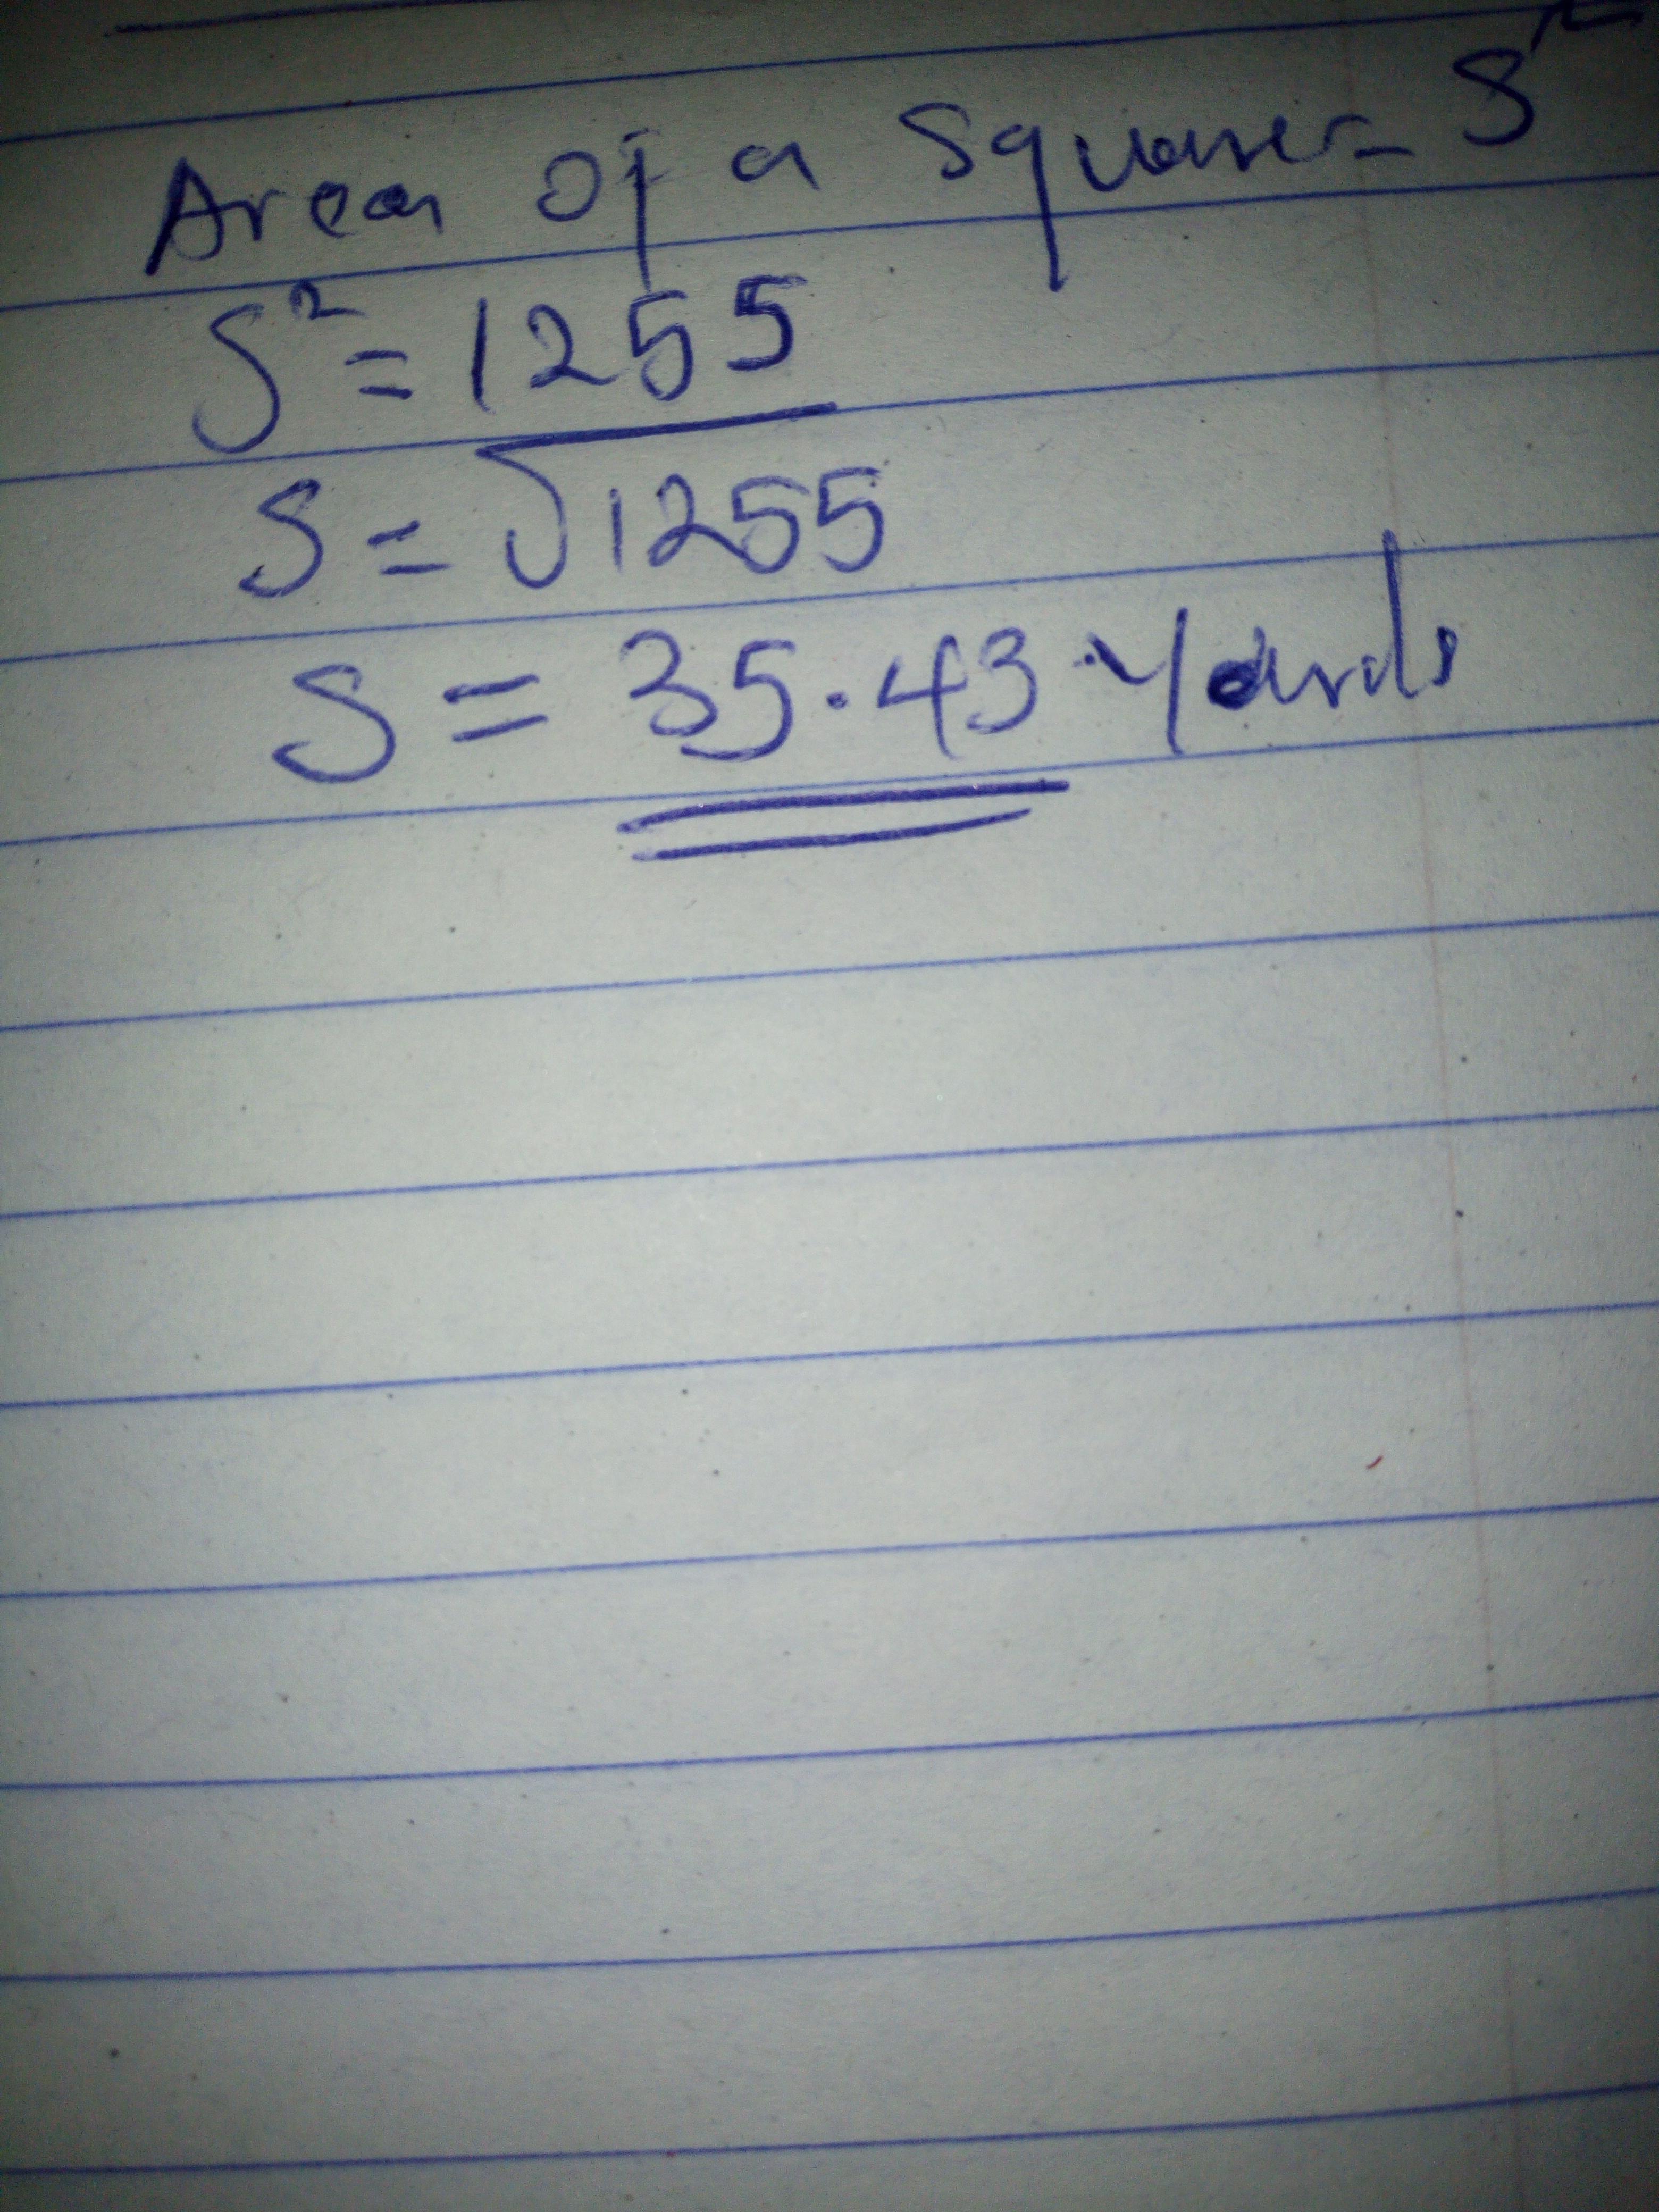 Area of a Square = S²
S² = 1255
S = √1255
S = 35.43 Yards